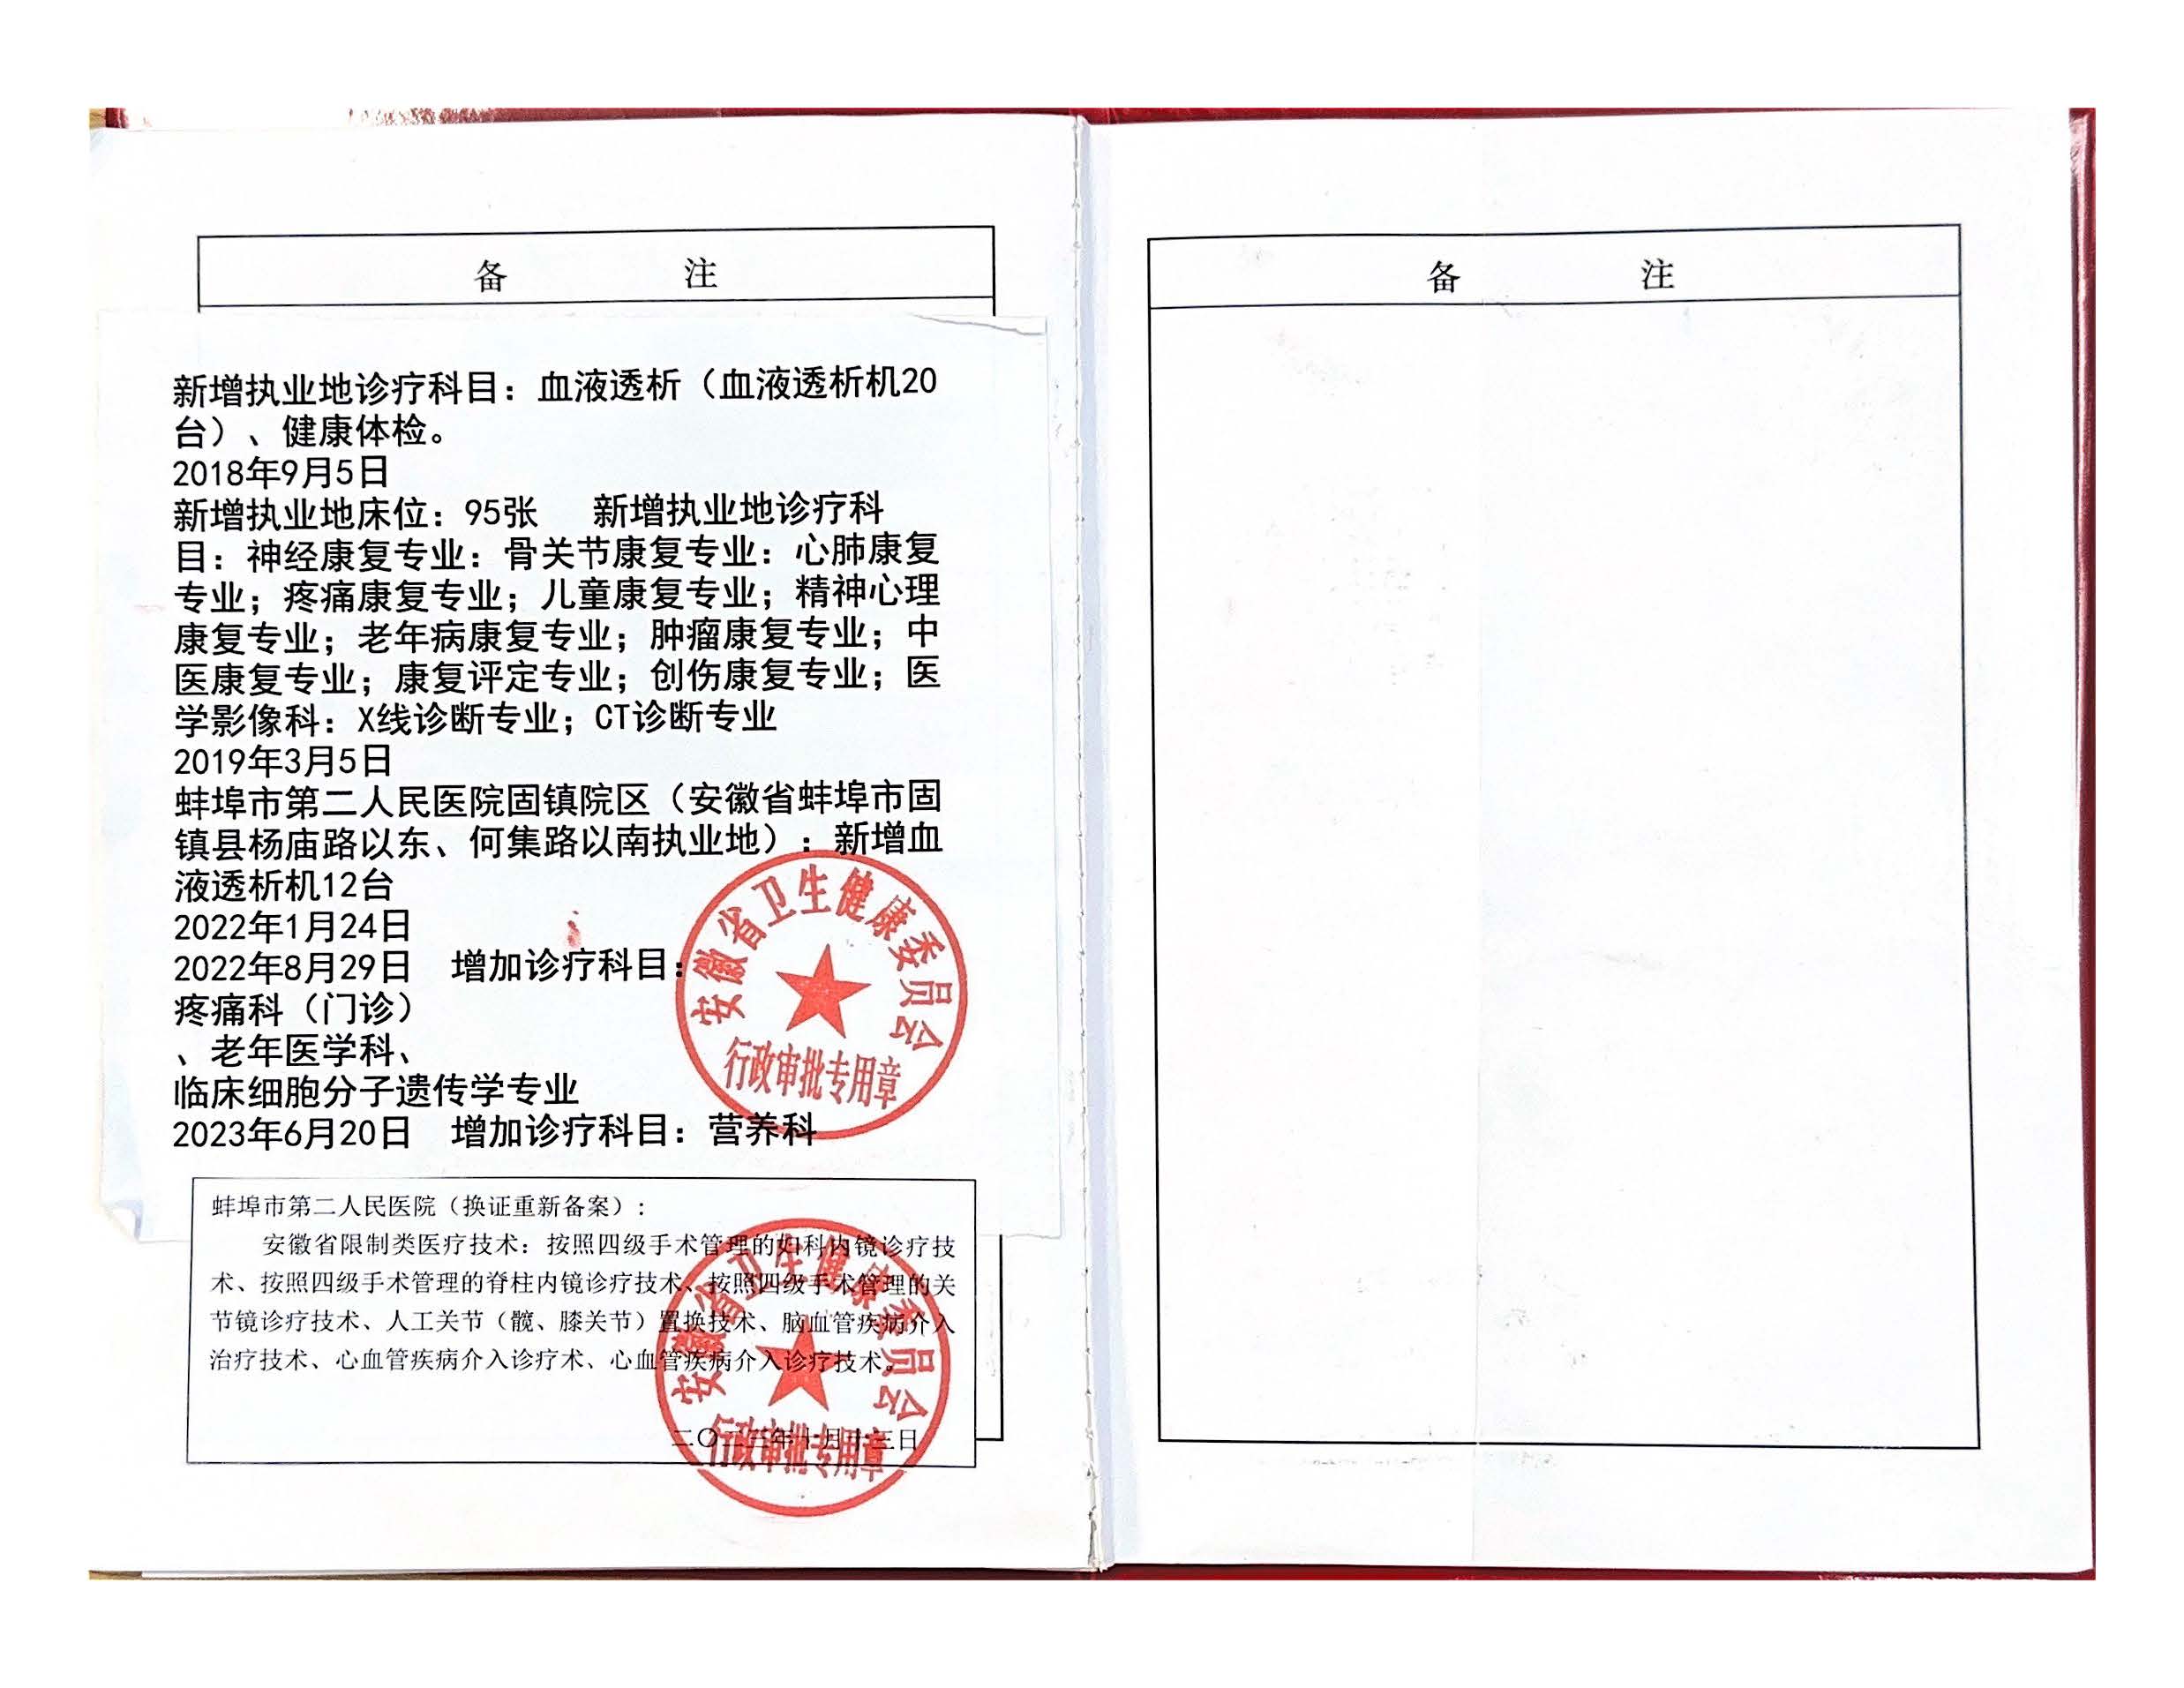 备 注
新增执业地诊疗科目：血液透析（血液透析机20
台）、健康体检。
2018年9月5日
新增执业地床位：95张 新增执业地诊疗科
目：神经康复专业：骨关节康复专业：心肺康复
专业；疼痛康复专业；儿童康复专业；精神心理
康复专业；老年病康复专业；肿瘤康复专业；中
医康复专业；康复评定专业；创伤康复专业；医
学影像科：X线诊断专业；CT诊断专业
2019年3月5日
蚌埠市第二人民医院固镇院区（安徽省蚌埠市固
镇县杨庙路以东、何集路以南执业地）：新增血
液透析机12台
2022年1月24日
2022年8月29日 增加诊疗科目：
疼痛科（门诊）
、老年医学科、
临床细胞分子遗传学专业
2023年6月20日 增加诊疗科目：营养科
安徽省卫生健康委员会
行政审批专用章
蚌埠市第二人民医院（换证重新备案）：
安徽省限制类医疗技术：按照四级手术管理的妇科内镜诊疗技
术、按照四级手术管理的脊柱内镜诊疗技术、按照四级手术管理的关
节镜诊疗技术、人工关节（髋、膝关节）置换技术、脑血管疾病介入
治疗技术、心血管疾病介入诊疗术、心血管疾病介入诊疗技术。
安徽省卫生健康委员会
行政审批专用章
备 注